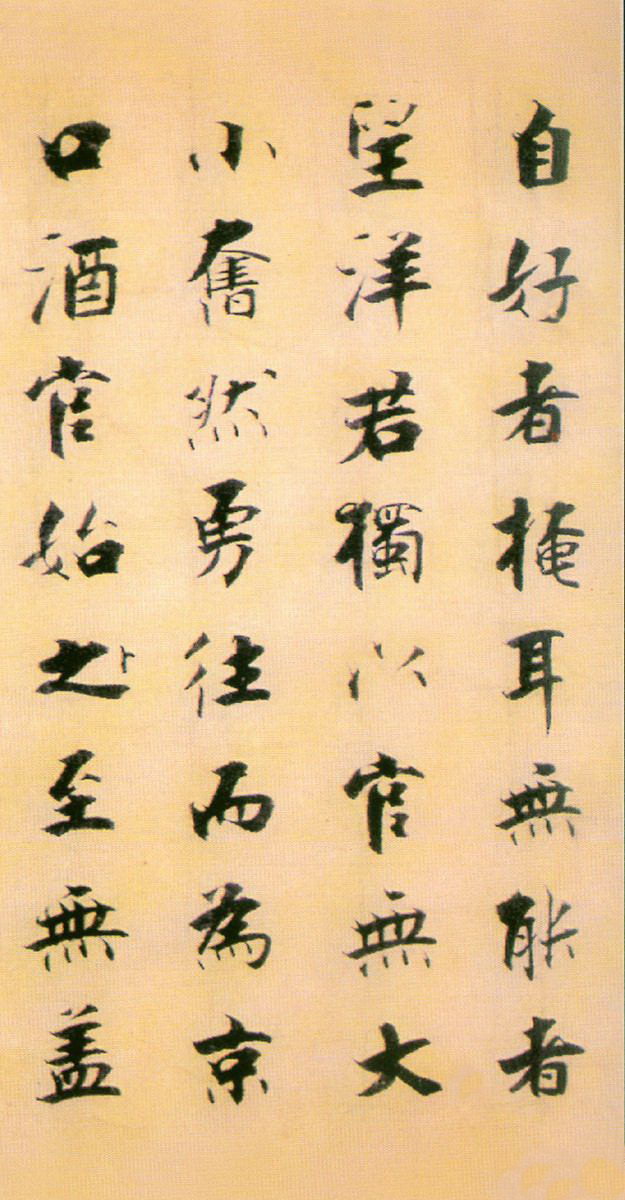 自好者掩耳無能者
望洋若獨以官無大
小奮然勇往而為京
口酒官始至之至無盖